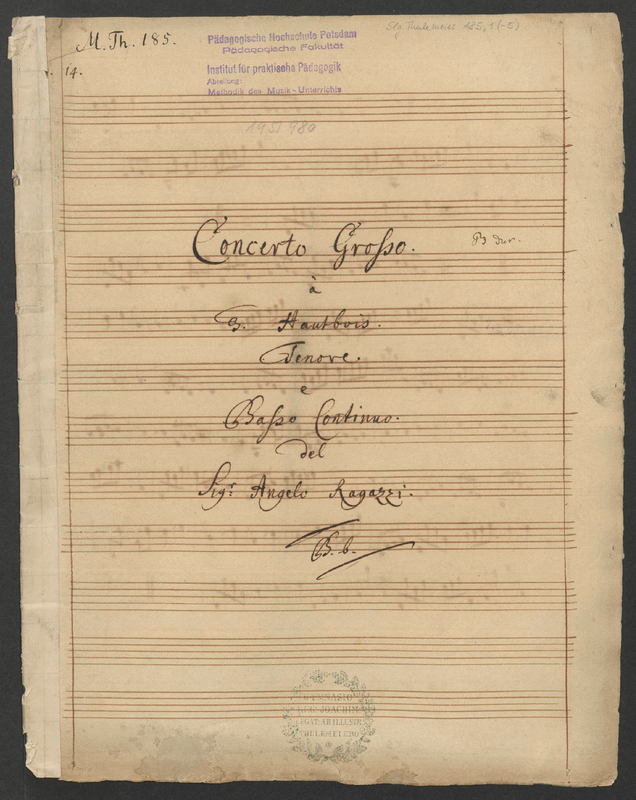 M. Th. 185.
Slg Thulemeier 185, 1 (-5)
Pädagogische Hochschule Potsdam
Pädagogische Fakultät
Institut für praktische Pädagogik
Abteilung:
Methodik des Musik-Unterrichts
14.
1951 980
Concerto Grosso.
B dur.
à
3. Hautbois.
Tenore.
e
Basso Continuo.
del
Sigr. Angelo Ragazzi.
B. b.
GYMNASIO
REG. IOACHIM
LEGAT: AB ILLUSTR
THULEMEIERO